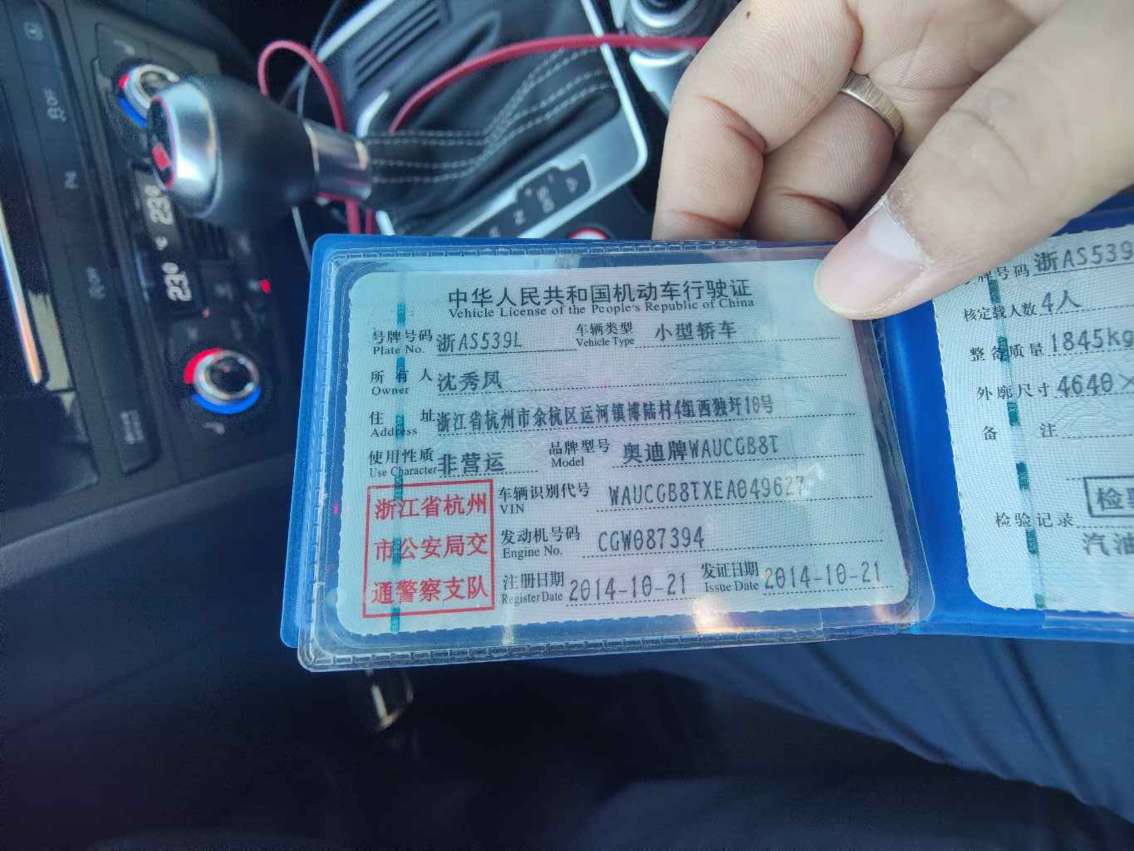 中华人民共和国机动车行驶证
Vehicle License of the People's Republic of China
号牌号码 浙AS539L 车辆类型 小型轿车
Plate No. Vehicle Type
所有人 沈秀凤
Owner
住址 浙江省杭州市余杭区运河镇博陆村4组西独圩18号
Address
使用性质 非营运 品牌型号 奥迪牌WAUCGB8T
Use Character Model
浙江省杭州
市公安局交
通警察支队
车辆识别代号 WAUCGB8TXEA049627
VIN
发动机号码 CGW087394
Engine No.
注册日期 2014-10-21 发证日期 2014-10-21
Register Date Issue Date
号牌号码 浙AS539
核定载人数 4人
整备质量 1845kg
外廓尺寸 4640×
备注
检验记录
汽油